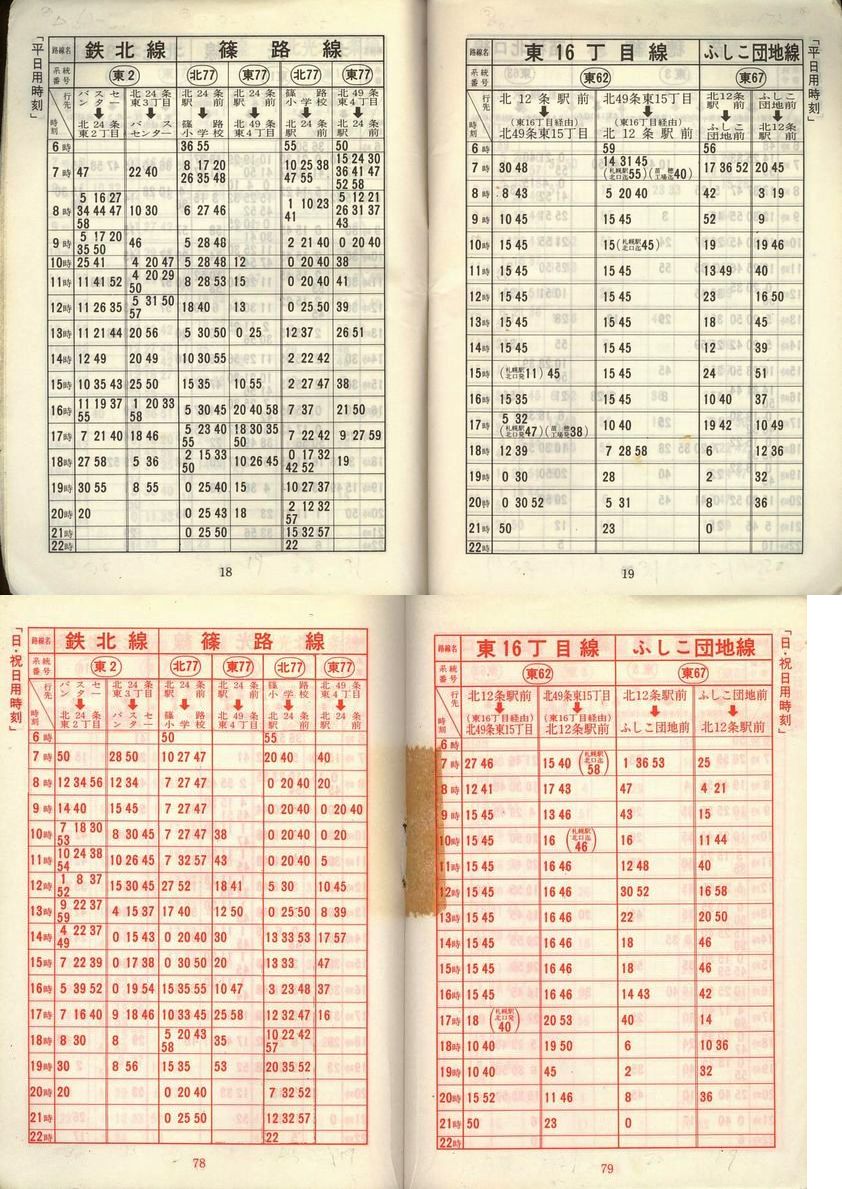 「平日用時刻」
路線名 鉄北線 篠路線
系統番号 東2 北77 東77 北77 東77
行先 時刻 バスセンター→北24条東2丁目 北24条東3丁目→バスセンター 北24条駅前→篠路小学校 北24条駅前→北49条東4丁目 篠路小学校→北24条駅前 北49条東4丁目→北24条駅前
6時 36 55 55 50
7時 47 22 40 8 17 20 26 35 48 10 25 38 47 55 15 24 30 36 41 47 52 58
8時 5 16 27 34 44 47 58 10 30 6 27 46 1 10 23 41 5 12 21 26 31 37 43
9時 5 17 20 35 50 46 5 28 48 2 21 40 0 20 40
10時 25 41 4 20 47 5 28 48 12 0 20 40 38
11時 11 41 52 4 20 29 50 8 28 53 15 0 20 40 41
12時 11 26 35 5 31 50 57 18 40 13 0 25 50 39
13時 11 21 44 20 56 5 30 50 0 25 12 37 26 51
14時 12 49 20 49 10 30 55 2 22 42
15時 10 35 43 25 50 15 35 10 55 2 27 47 38
16時 11 19 37 55 1 20 33 58 5 30 45 20 40 58 7 37 21 50
17時 7 21 40 18 46 5 23 40 55 18 30 35 50 7 22 42 9 27 59
18時 27 58 5 36 2 15 33 50 10 26 45 0 17 32 42 52 19
19時 30 55 8 55 0 25 40 15 10 27 37
20時 20 0 25 43 18 2 12 32 57
21時 0 25 50 15 32 57
22時 22
18
「平日用時刻」
路線名 東16丁目線 ふしこ団地線
系統番号 東62 東67
行先 時刻 北12条駅前→(東16丁目経由)北49条東15丁目 北49条東15丁目→(東16丁目経由)北12条駅前 北12条駅前→ふしこ団地前 ふしこ団地前→北12条駅前
6時 59 56
7時 30 48 14 31 45 (札幌駅北口迄55)(苗穂工場迄40) 17 36 52 20 45
8時 8 43 5 20 40 42 3 19
9時 10 45 15 45 52 9
10時 15 45 15(札幌駅北口迄45) 19 19 46
11時 15 45 15 45 13 49 40
12時 15 45 15 45 23 16 50
13時 15 45 15 45 18 45
14時 15 45 15 45 12 39
15時 (札幌駅北口発11) 45 15 45 24 51
16時 15 35 15 45 10 40 37
17時 5 32 (札幌駅北口発47)(苗穂工場発38) 10 40 19 42 10 49
18時 12 39 7 28 58 6 12 36
19時 0 30 28 2 32
20時 0 30 52 5 31 8 36
21時 50 23 0
22時
19
「日・祝日用時刻」
路線名 鉄北線 篠路線
系統番号 東2 北77 東77 北77 東77
行先 時刻 バスセンター→北24条東2丁目 北24条東3丁目→バスセンター 北24条駅前→篠路小学校 北24条駅前→北49条東4丁目 篠路小学校→北24条駅前 北49条東4丁目→北24条駅前
6時 50 55
7時 50 28 50 10 27 47 20 40 40
8時 12 34 56 12 34 7 27 47 0 20 40 20
9時 14 40 15 45 7 27 47 0 20 40 0 20 40
10時 7 18 30 53 8 30 45 7 27 47 38 0 20 40 0 20
11時 10 24 38 54 10 26 45 7 32 57 43 0 20 40 5
12時 1 8 37 52 15 30 45 27 52 18 41 5 30 10 45
13時 9 22 37 59 4 15 37 17 40 12 50 0 25 50 8 39
14時 4 22 37 49 0 15 43 0 20 40 30 13 33 53 17 57
15時 7 22 39 0 17 38 0 30 50 20 13 33 47
16時 5 39 52 0 19 54 15 35 55 10 47 3 23 48 37
17時 7 16 40 9 18 46 10 33 45 25 58 12 32 47 16
18時 8 30 8 5 20 43 58 35 10 22 42 57
19時 30 8 56 15 35 53 20 35 52
20時 20 0 20 40 7 32 52
21時 0 25 50 12 32 57
22時 22
78
「日・祝日用時刻」
路線名 東16丁目線 ふしこ団地線
系統番号 東62 東67
行先 時刻 北12条駅前→(東16丁目経由)北49条東15丁目 北49条東15丁目→(東16丁目経由)北12条駅前 北12条駅前→ふしこ団地前 ふしこ団地前→北12条駅前
6時
7時 27 46 15 40 (札幌駅北口迄58) 1 36 53 25
8時 12 41 17 43 47 4 21
9時 15 45 13 46 43 15
10時 15 45 16 (札幌駅北口迄46) 16 11 44
11時 15 45 16 46 12 48 40
12時 15 45 16 46 30 52 16 58
13時 15 45 16 46 22 20 50
14時 15 45 16 46 18 46
15時 15 45 16 46 18 46
16時 15 45 16 46 14 43 42
17時 18 (札幌駅北口発40) 20 53 40 14
18時 10 40 19 50 6 10 36
19時 10 40 45 2 32
20時 15 52 11 46 8 36
21時 50 23 0
22時
79